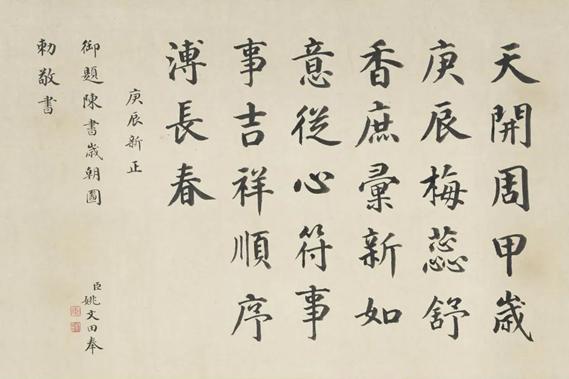 天開周甲歲
庚辰梅蕊舒
香庶彙新如
意從心符事
事吉祥順序
溥長春
庚辰新正
御題陳書歲朝圖 臣姚文田奉
勅敬書